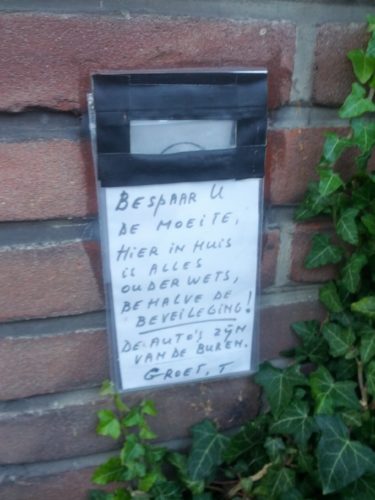 BESPAAR U
DE MOEITE,
HIER IN HUIS
IS ALLES
OUDERWETS,
BEHALVE DE
BEVEILEGING!
DE AUTO'S ZIJN
VAN DE BUREN.
GROET, T